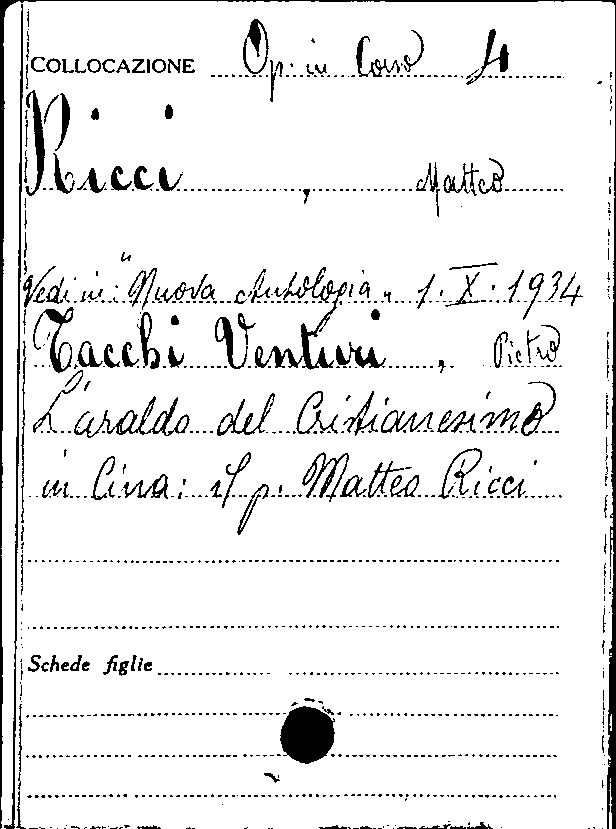 COLLOCAZIONE Op. in Corso 4
Ricci, Matteo
Vedi in: "Nuova Antologia" 1. X. 1934
Tacchi Venturi, Pietro
L'araldo del Cristianesimo
in Cina: il p. Matteo Ricci
Schede figlie